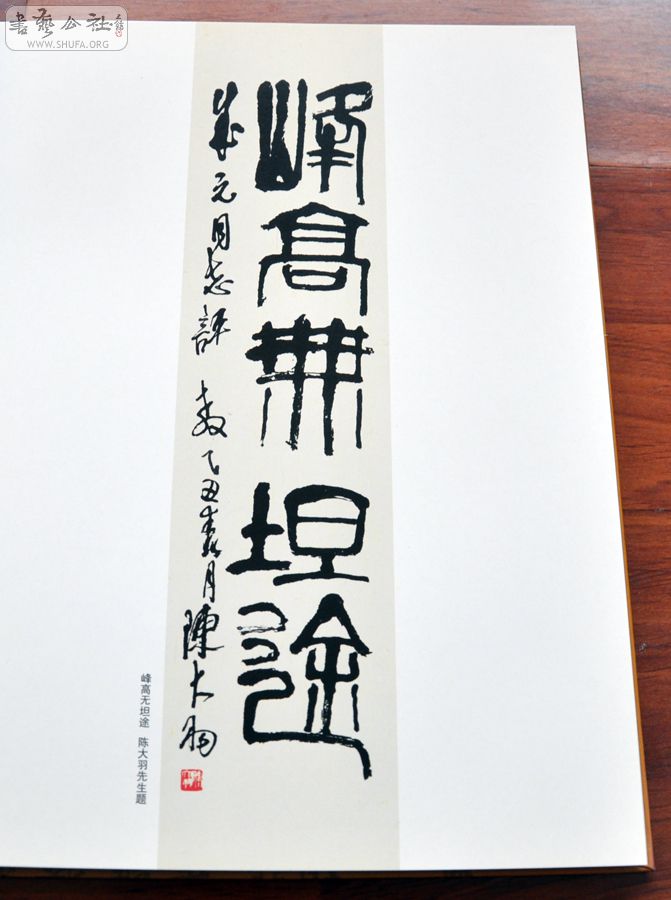 書藝公社
WWW.SHUFA.ORG
峰高無坦途
成元同志評教 乙丑春月陳大羽
峰高无坦途 陈大羽先生题